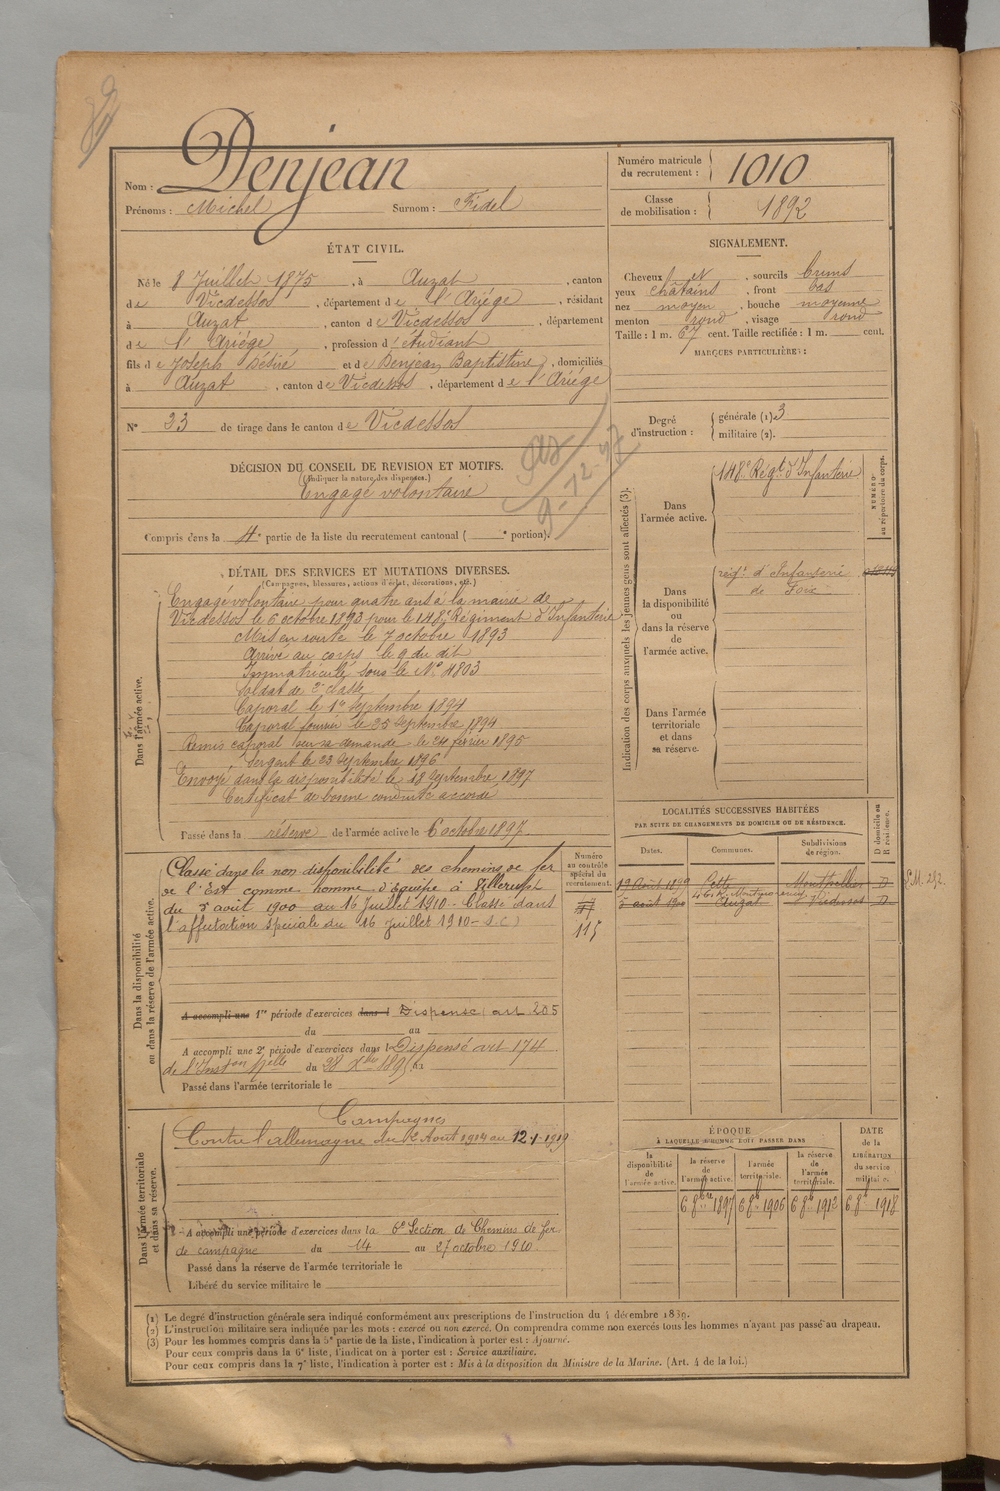 Nom : Denjean
Prénoms : Michel Surnom : Fidel
Numéro matricule du recrutement : 1010
Classe de mobilisation : 1892
ÉTAT CIVIL.
Né le 8 Juillet 1875, à Auzat, canton
de Vicdessos, département de l'Ariége, résidant
à Auzat, canton de Vicdessos, département
de l'Ariége, profession d'étudiant
fils de Joseph Désiré et de Denjean Baptistine, domiciliés
à Auzat, canton de Vicdessos, département de l'Ariége
SIGNALEMENT.
Cheveux et, sourcils bruns
yeux châtains, front bas
nez moyen, bouche moyenne
menton rond, visage rond
Taille : 1 m. 67 cent. Taille rectifiée : 1 m. cent.
MARQUES PARTICULIÈRES :
N° 23 de tirage dans le canton de Vicdessos
Degré d'instruction : générale (1). 3
militaire (2).
DÉCISION DU CONSEIL DE REVISION ET MOTIFS.
(Indiquer la nature des dispenses.)
Engagé volontaire
9-12-97
Compris dans la 4e partie de la liste du recrutement cantonal ( e portion).
Indication des corps auxquels les jeunes gens sont affectés (3).
NUMÉRO au répertoire du corps.
Dans l'armée active. 148e Régt d'Infanterie
Dans la disponibilité ou dans la réserve de l'armée active. régt d'Infanterie
de Foix
Dans l'armée territoriale et dans sa réserve.
DÉTAIL DES SERVICES ET MUTATIONS DIVERSES.
(Campagnes, blessures, actions d'éclat, décorations, etc.)
Dans l'armée active.
Engagé volontaire pour quatre ans à la mairie de
Vicdessos le 6 octobre 1893 pour le 148e Régiment d'Infanterie
Mis en route le 7 octobre 1893
Arrivé au corps le 9 du dit
Immatriculé sous le N° 4803
Soldat de 2e classe
Caporal le 1er Septembre 1894
Caporal fourrier le 25 Septembre 1894
Remis caporal sur sa demande le 24 février 1895
Sergent le 23 Septembre 1896
Envoyé dans la disponibilité le 18 Septembre 1897
Certificat de bonne conduite accordé
Passé dans la réserve de l'armée active le 6 octobre 1897.
LOCALITÉS SUCCESSIVES HABITÉES
PAR SUITE DE CHANGEMENTS DE DOMICILE OU DE RÉSIDENCE.
Dates. Communes. Subdivisions de région. D domicile ou R résidence.
19 Août 1899 Cette Montpellier D
5 août 1900 Auzat Vicdessos D
Dans la disponibilité ou dans la réserve de l'armée active.
Numéro au contrôle spécial du recrutement.
Classé dans la non disponibilité des chemins de fer
de l'Est comme homme d'équipe à Villerupt
du 5 août 1900 au 16 Juillet 1910 - Classé dans
l'affectation spéciale du 16 Juillet 1910 - S.C)
115
A accompli une 1re période d'exercices dans l Dispensé art 205
du au
A accompli une 2e période d'exercices dans l Dispensé art 174
de l'Inston Melle du 28 Xbre 1895 au
Passé dans l'armée territoriale le
Dans l'armée territoriale et dans sa réserve.
Campagnes
Contre l'allemagne du 2 Août 1914 au 12-1-1919
A accompli une période d'exercices dans la 6e Section de Chemins de fer
de campagne du 14 au 27 octobre 1910
Passé dans la réserve de l'armée territoriale le
Libéré du service militaire le
ÉPOQUE
À LAQUELLE L'HOMME DOIT PASSER DANS
la disponibilité de l'armée active. la réserve de l'armée active. l'armée territoriale. la réserve de l'armée territoriale. DATE de la LIBÉRATION du service militaire.
6 8bre 1897 6 8bre 1906 6 8bre 1912 6 8bre 1918
(1) Le degré d'instruction générale sera indiqué conformément aux prescriptions de l'instruction du 4 décembre 1889.
(2) L'instruction militaire sera indiquée par les mots : exercé ou non exercé. On comprendra comme non exercés tous les hommes n'ayant pas passé au drapeau.
(3) Pour les hommes compris dans la 5e partie de la liste, l'indication à porter est : Ajourné.
Pour ceux compris dans la 6e liste, l'indication à porter est : Service auxiliaire.
Pour ceux compris dans la 7e liste, l'indication à porter est : Mis à la disposition du Ministre de la Marine. (Art. 4 de la loi.)